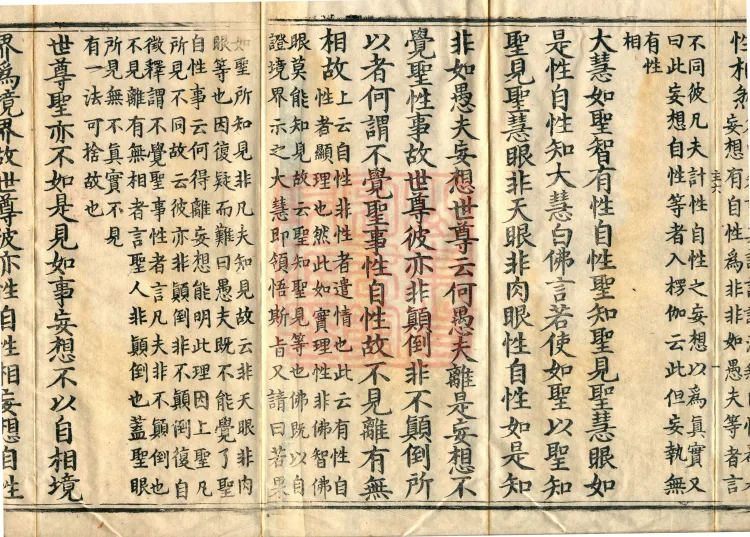 妄想有自性爲非非如愚夫等者言
主六
不同彼凡夫計性自性之妄想以爲真實又
曰此妄想自性等者入楞伽云此但妄執無
有性
相
大慧如聖智有性自性聖知聖見聖慧眼如
是性自性知大慧白佛言若使如聖以聖知
聖見聖慧眼非天眼非肉眼性自性如是知
非如愚夫妄想世尊云何愚夫離是妄想不
覺聖性事故世尊彼亦非顛倒非不顛倒所
以者何謂不覺聖事性自性故不見離有無
相故
上云自性非性者遣情也此云有性自
性者顯理也然此如實理性非佛智佛
眼莫能知見故云聖知聖見等也佛既以自
證境界示之大慧即領悟斯旨又請曰若果
如聖所知見非凡夫知見故云非天眼非肉
眼等也因復疑而難曰愚夫既不能覺了聖
自性事云何得離妄想能明此理因上聖凡
所見不同故云彼亦非顛倒非不顛倒復自
徵釋謂不覺聖事性者言凡夫非不顛倒也
不見離有無相者言聖人非顛倒也蓋聖眼
所見無不真實不見
有一法可捨故也
世尊聖亦不如是見如事妄想不以自相境
界爲境界故世尊彼亦性自性相妄想自性